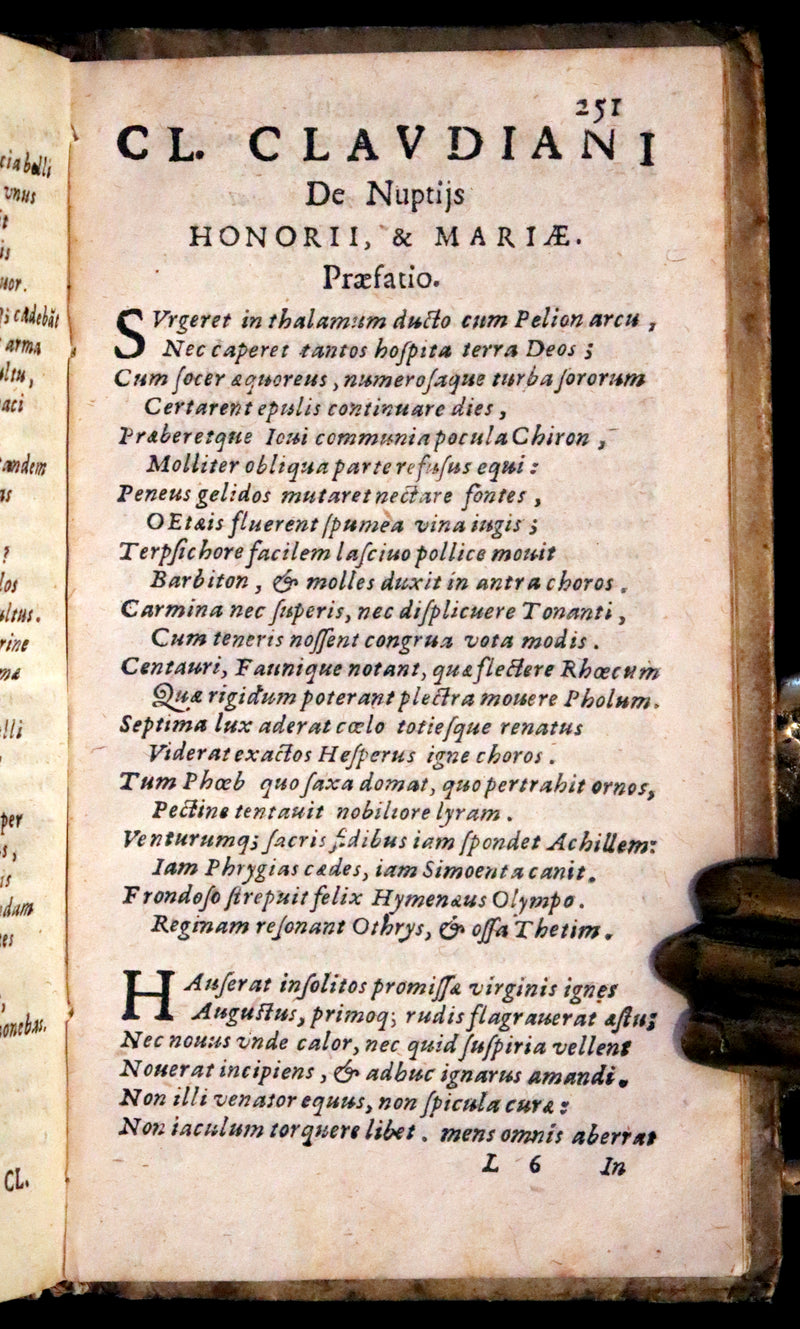 251
CL. CLAVDIANI
De Nuptijs
HONORII, & MARIÆ.
Præfatio.
SVrgeret in thalamum ducto cum Pelion arcu,
Nec caperet tantos hoſpita terra Deos;
Cum ſocer æquoreus, numeroſaque turba ſororum
Certarent epulis continuare dies,
Præberetque Ioui communia pocula Chiron,
Molliter obliqua parte refuſus equi:
Peneus gelidos mutaret nectare fontes,
OEtæis fluerent ſpumea vina iugis;
Terpſichore facilem laſciuo pollice mouit
Barbiton, & molles duxit in antra choros.
Carmina nec ſuperis, nec diſplicuere Tonanti,
Cum teneris noſſent congrua vota modis.
Centauri, Faunique notant, quæ flectere Rhœcum
Quæ rigidum poterant plectra mouere Pholum.
Septima lux aderat cœlo totieſque renatus
Viderat exactos Heſperus igne choros.
Tum Phœb quo ſaxa domat, quo pertrahit ornos,
Pectine tentauit nobiliore lyram.
Venturumq; ſacris fidibus iam ſpondet Achillem:
Iam Phrygias cædes, iam Simoenta canit.
Frondoſo ſtrepuit felix Hymenæus Olympo.
Reginam reſonant Othrys, & oſſa Thetim.
HAuſerat inſolitos promiſſæ virginis ignes
Auguſtus, primoq; rudis flagrauerat æſtu;
Nec nouus vnde calor, nec quid ſuſpiria vellent
Nouerat incipiens, & adhuc ignarus amandi.
Non illi venator equus, non ſpicula curæ:
Non iaculum torquere libet. mens omnis aberrat
L 6 In
vnus
arma
aci
tandem
?
rine
per
CL.